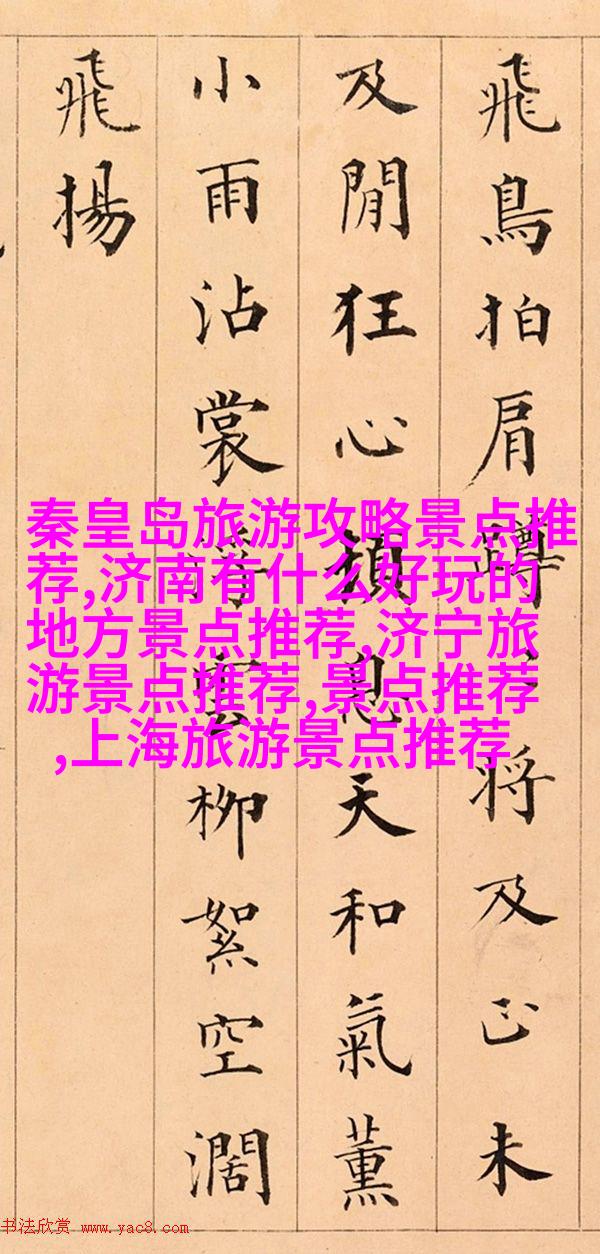 飛鳥拍肩將及未
及閒狂心頓息天和氣薰
小雨沾裳雲柳絮空闊
飛揚
秦皇岛旅游攻略景点推
荐,济南有什么好玩的
地方景点推荐,济宁旅
游景点推荐,景点推荐
,上海旅游景点推荐
书法欣赏 www.yac8.com